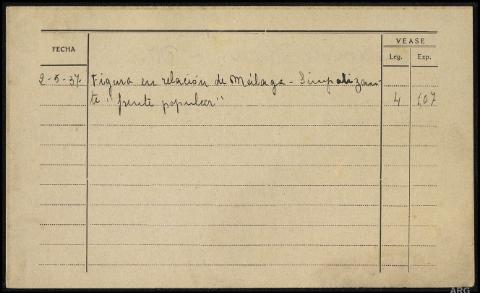 VEASE
FECHA Leg. Exp.
2-5-37. Figura en relación de Málaga - Simpatizan-
te "frente popular" 4 107
ARG